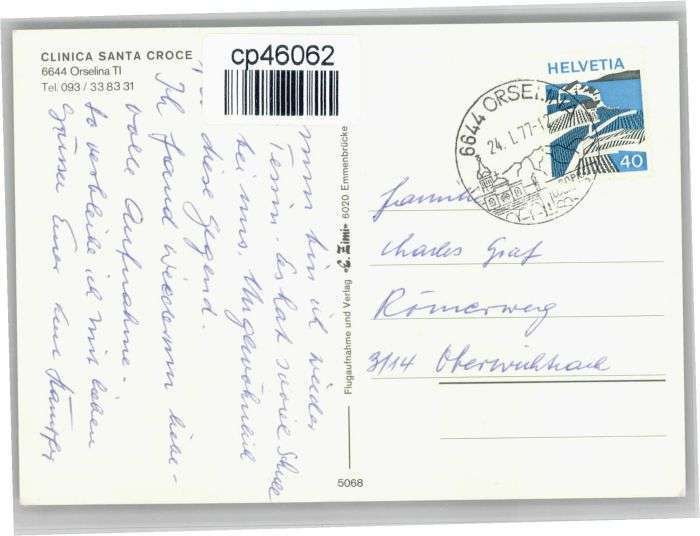 CLINICA SANTA CROCE
6644 Orselina TI
Tel. 093 / 33 83 31
cp46062
bin ich wieder
Tessin. Es hat soviel
bei uns. Ungewöhnlich
diese Gegend.
Ich fand wiederum liebe-
volle Aufnahme.
So verbleibe ich mit lieben
Grüssen Euer
Flugaufnahme und Verlag «E. Zimi» 6020 Emmenbrücke
5068
HELVETIA
40
6644 ORSELINA
24.1.77-12
Charles Graf
Römerweg
3114 Oberwichtrach